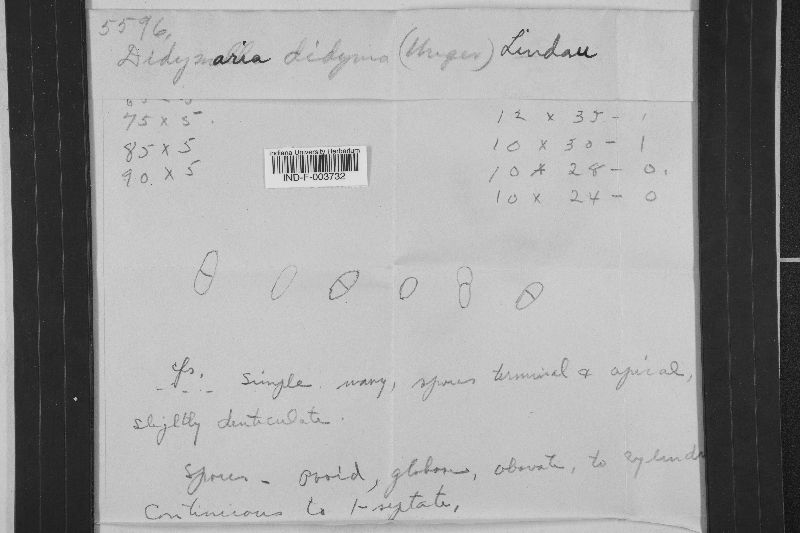 5596.
Didymaria didyma (Unger) Lindau
75 x 5.
85 x 5
90. x 5
12 x 35 - 1
10 x 30 - 1
10 x 28 - 0.
10 x 24 - 0
Indiana University Herbarium
IND-F-003732
cfs. simple. wavy, spores terminal & apical,
slightly denticulate.
Spores - ovoid, globose, obovate, to
Continuous to 1-septate,